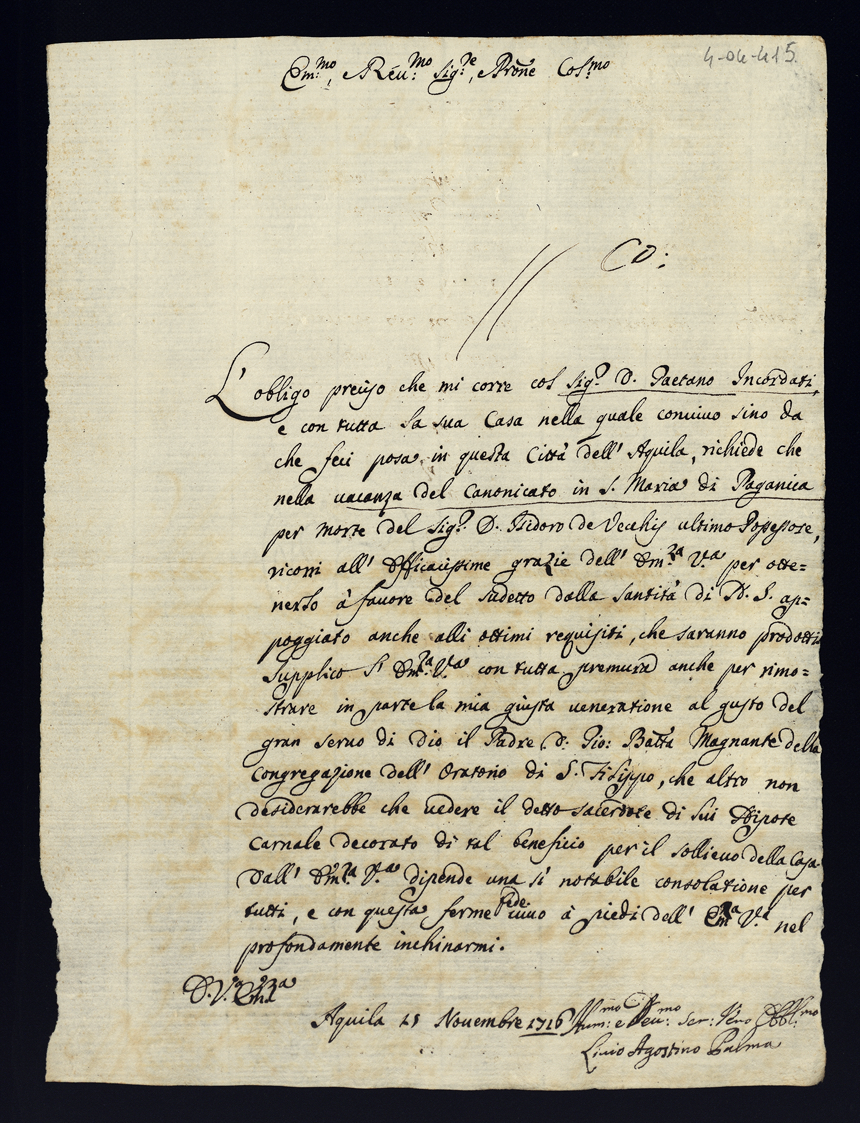 4-04-415
Em:mo, e Reu:mo Sig:re, Prone Cols:mo
Co:
L'obligo preciso che mi corre col Sig.r D. Gaetano Incordati,
e con tutta la sua Casa nella quale conuiuo sino da
che feci posa in questa Città dell'Aquila, richiede che
nella uacanza del Canonicato in S. Maria di Paganica
per morte del Sig.r D. Isidoro de Vechis ultimo Possessore,
ricorri all'Efficacissime grazie dell'Em:za V.a per otte=
nerlo à fauore del sudetto dalla Santità di N. S. ap=
poggiato anche alli ottimi requisiti, che saranno prodotti
Supplico l'Em:za V.a con tutta premura anche per rimo=
strare in parte la mia giusta uenerazione al gusto del
gran seruo di Dio il Padre D. Gio: Batta Magnante della
Congregazione dell'Oratorio di S. Filippo, che altro non
desiderarebbe che uedere il detto sacerdote di lui Nipote
Carnale decorato di tal beneficio per il sollieuo della Casa
Dall'Em:za V.a dipende una sì notabile consolatione per
tutti, e con questa ferme fede uiuo à piedi dell'Em:za V.a nel
profondamente inchinarmi.
D. V.a Em:za
Aquila 21 Nouembre 1716
Hum:mo e Deu:mo Ser: Vero Obbl:mo
Liuio Agostino Palma